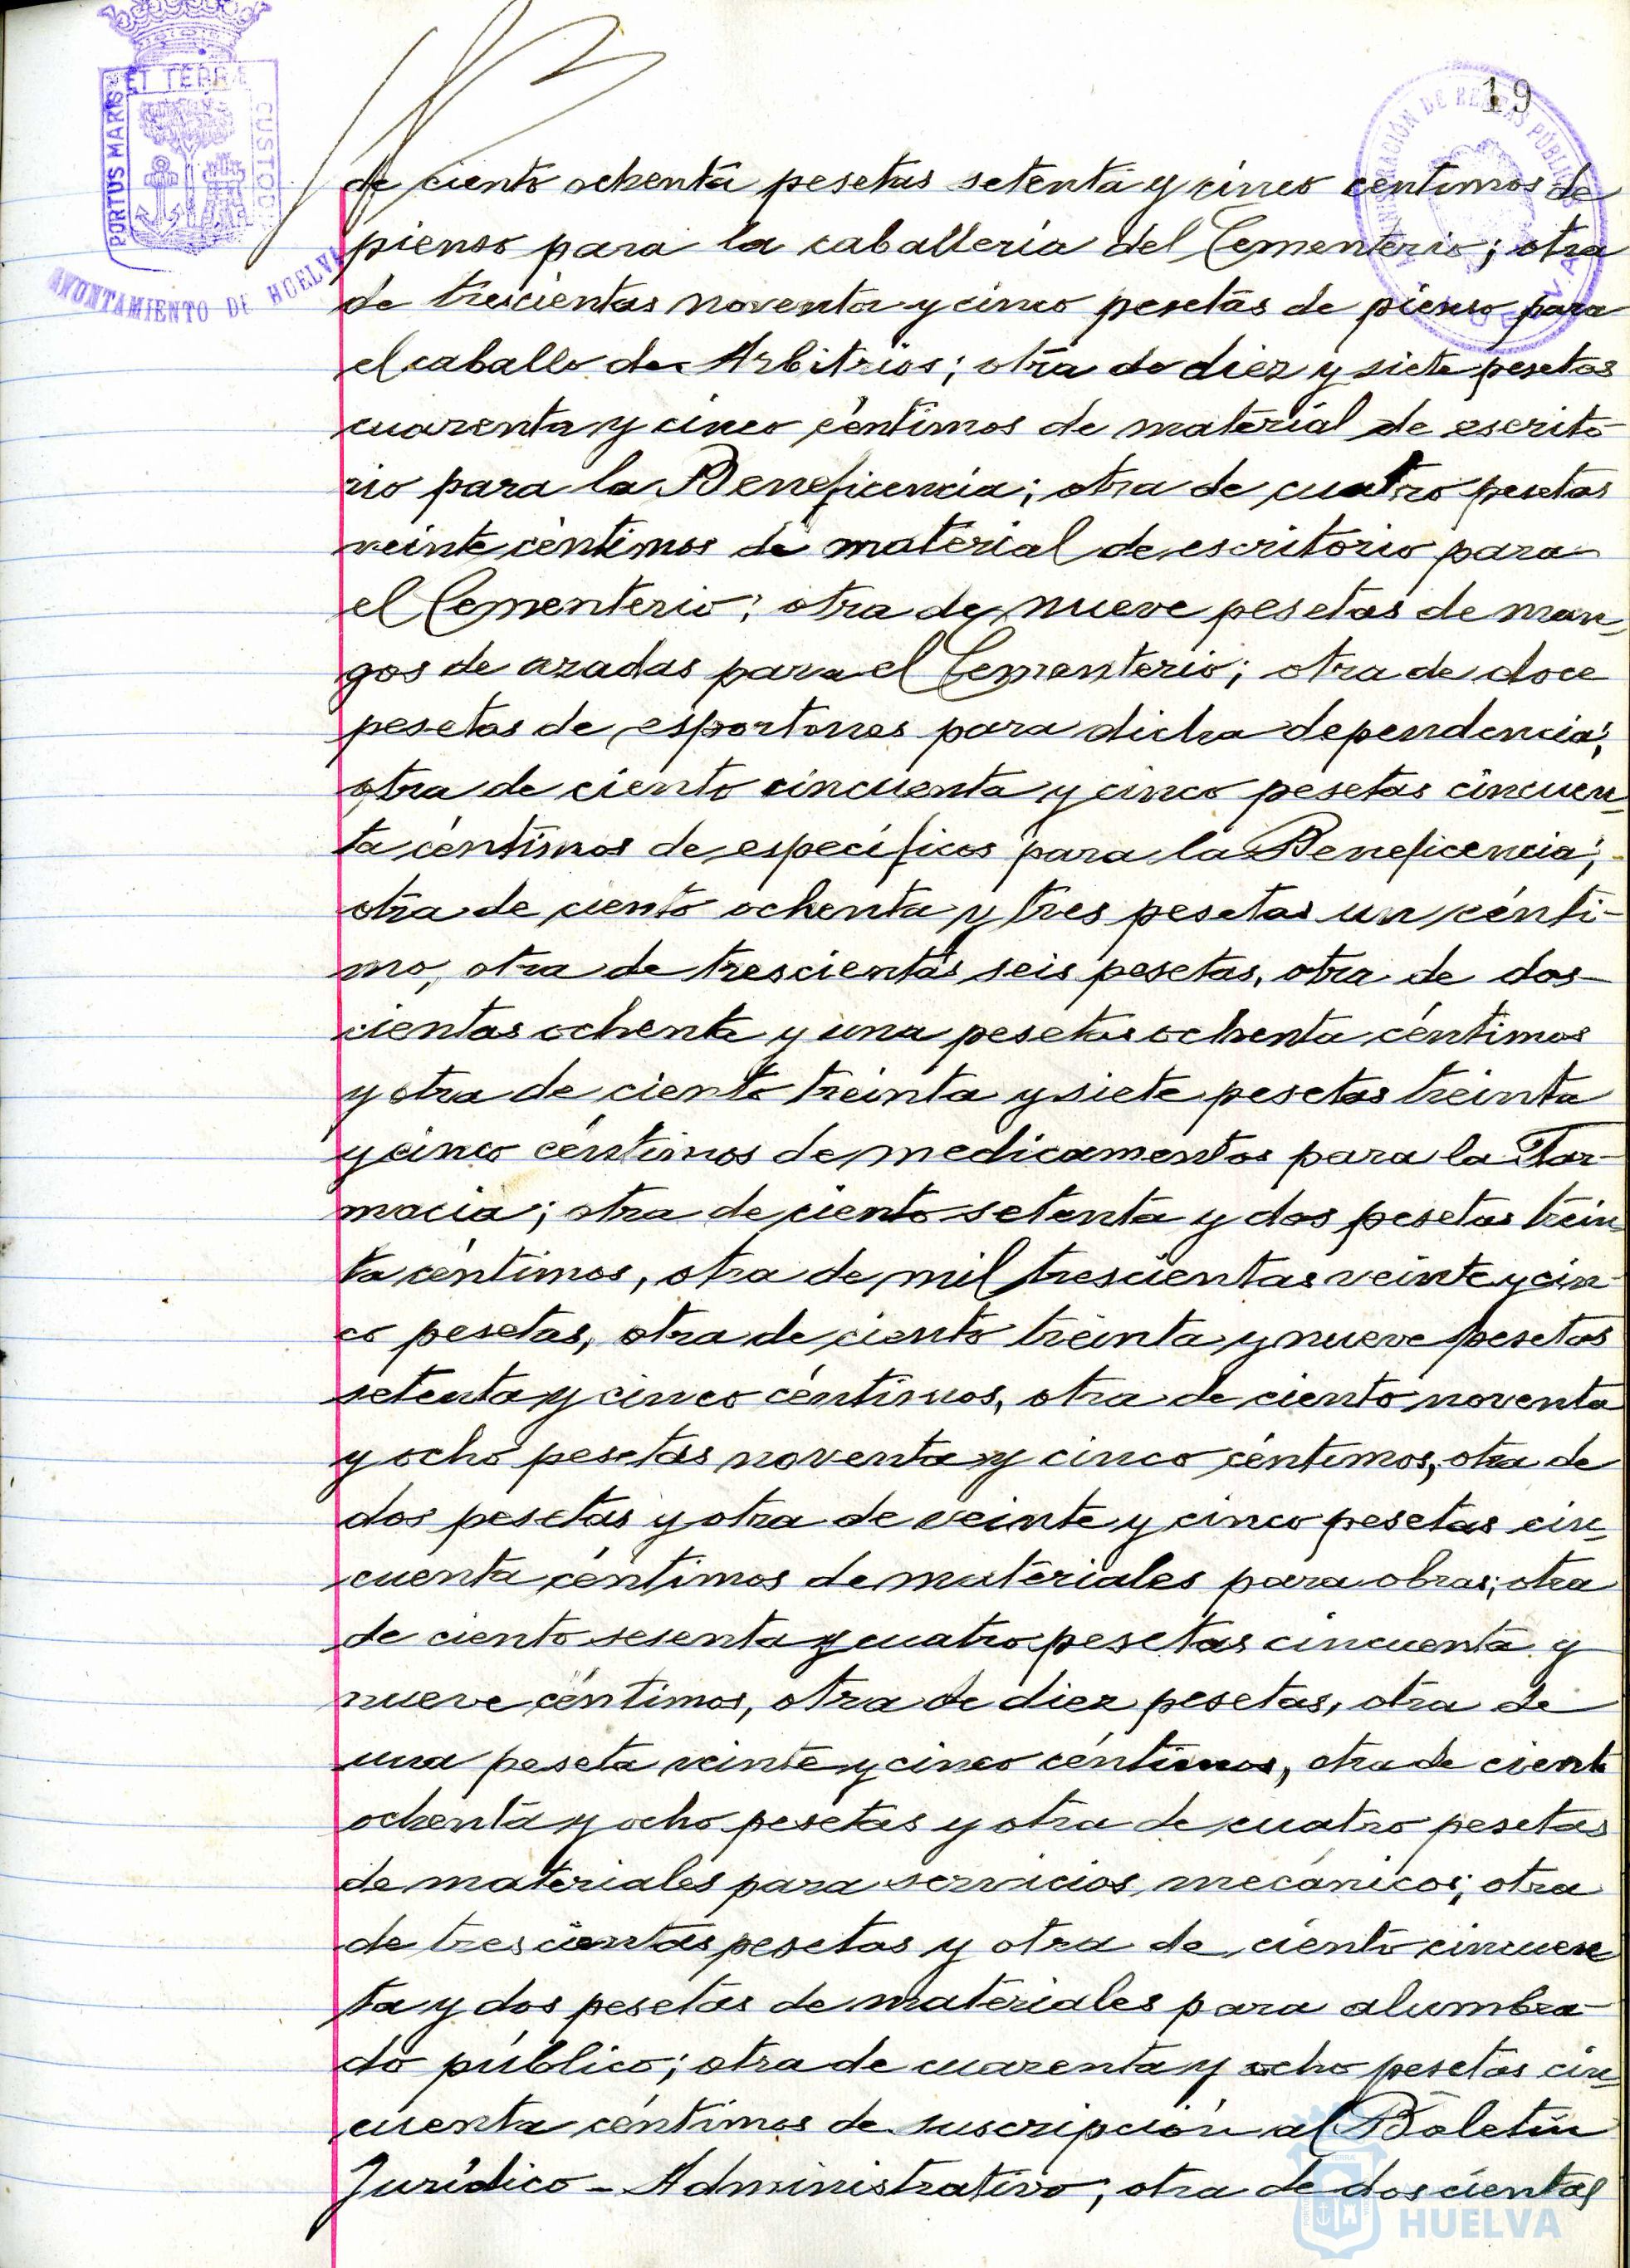 19
PORTUS MARIS ET TERRÆ CUSTODIA
AYUNTAMIENTO DE HUELVA
de ciento ochenta pesetas setenta y cinco centimos de
pienso para la caballeria del Cementerio; otra
de trescientas noventa y cinco pesetas de pienso para
el caballo de Arbitrios; otra de diez y siete pesetas
cuarenta y cinco céntimos de material de escrito-
rio para la Beneficencia; otra de cuatro pesetas
veinte céntimos de material de escritorio para
el Cementerio; otra de nueve pesetas de man-
gos de azadas para el Cementerio; otra de doce
pesetas de esportones para dicha dependencia;
otra de ciento cincuenta y cinco pesetas cincuen-
ta céntimos de específicos para la Beneficencia;
otra de ciento ochenta y tres pesetas un cénti-
mo, otra de trescientas seis pesetas, otra de dos-
cientas ochenta y una pesetas ochenta céntimos
y otra de ciento treinta y siete pesetas treinta
y cinco céntimos de medicamentos para la Far-
macia; otra de ciento setenta y dos pesetas trein-
ta céntimos, otra de mil trescientas veinte y cin-
co pesetas, otra de ciento treinta y nueve pesetas
setenta y cinco céntimos, otra de ciento noventa
y ocho pesetas noventa y cinco céntimos, otra de
dos pesetas y otra de veinte y cinco pesetas cin-
cuenta céntimos de materiales para obras; otra
de ciento sesenta y cuatro pesetas cincuenta y
nueve céntimos, otra de diez pesetas, otra de
una peseta veinte y cinco céntimos, otra de cient
ochenta y ocho pesetas y otra de cuatro pesetas
de materiales para servicios mecánicos; otra
de trescientas pesetas y otra de ciento cincuen
ta y dos pesetas de materiales para alumbra-
do público; otra de cuarenta y ocho pesetas cin-
cuenta céntimos de suscripción al Boletin
Jurídico - Administrativo; otra de doscientas
HUELVA